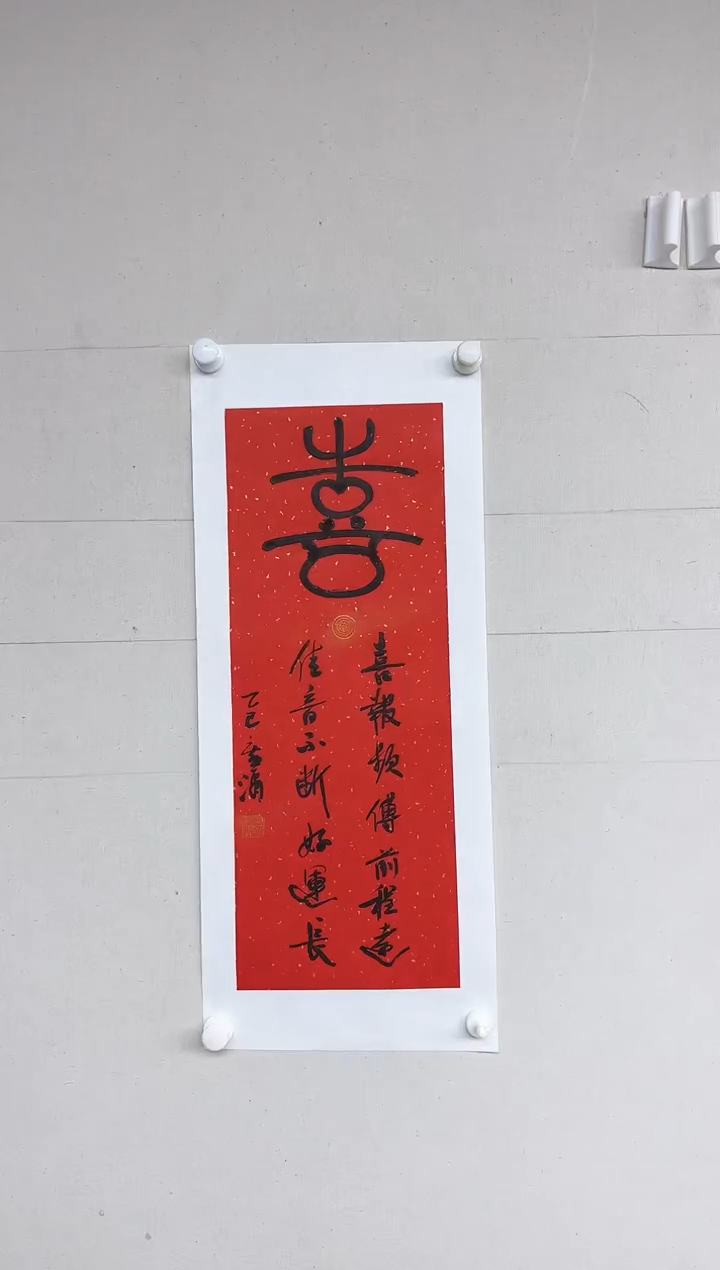 喜
喜報頻傳前程遠
佳音不斷好運長
乙巳